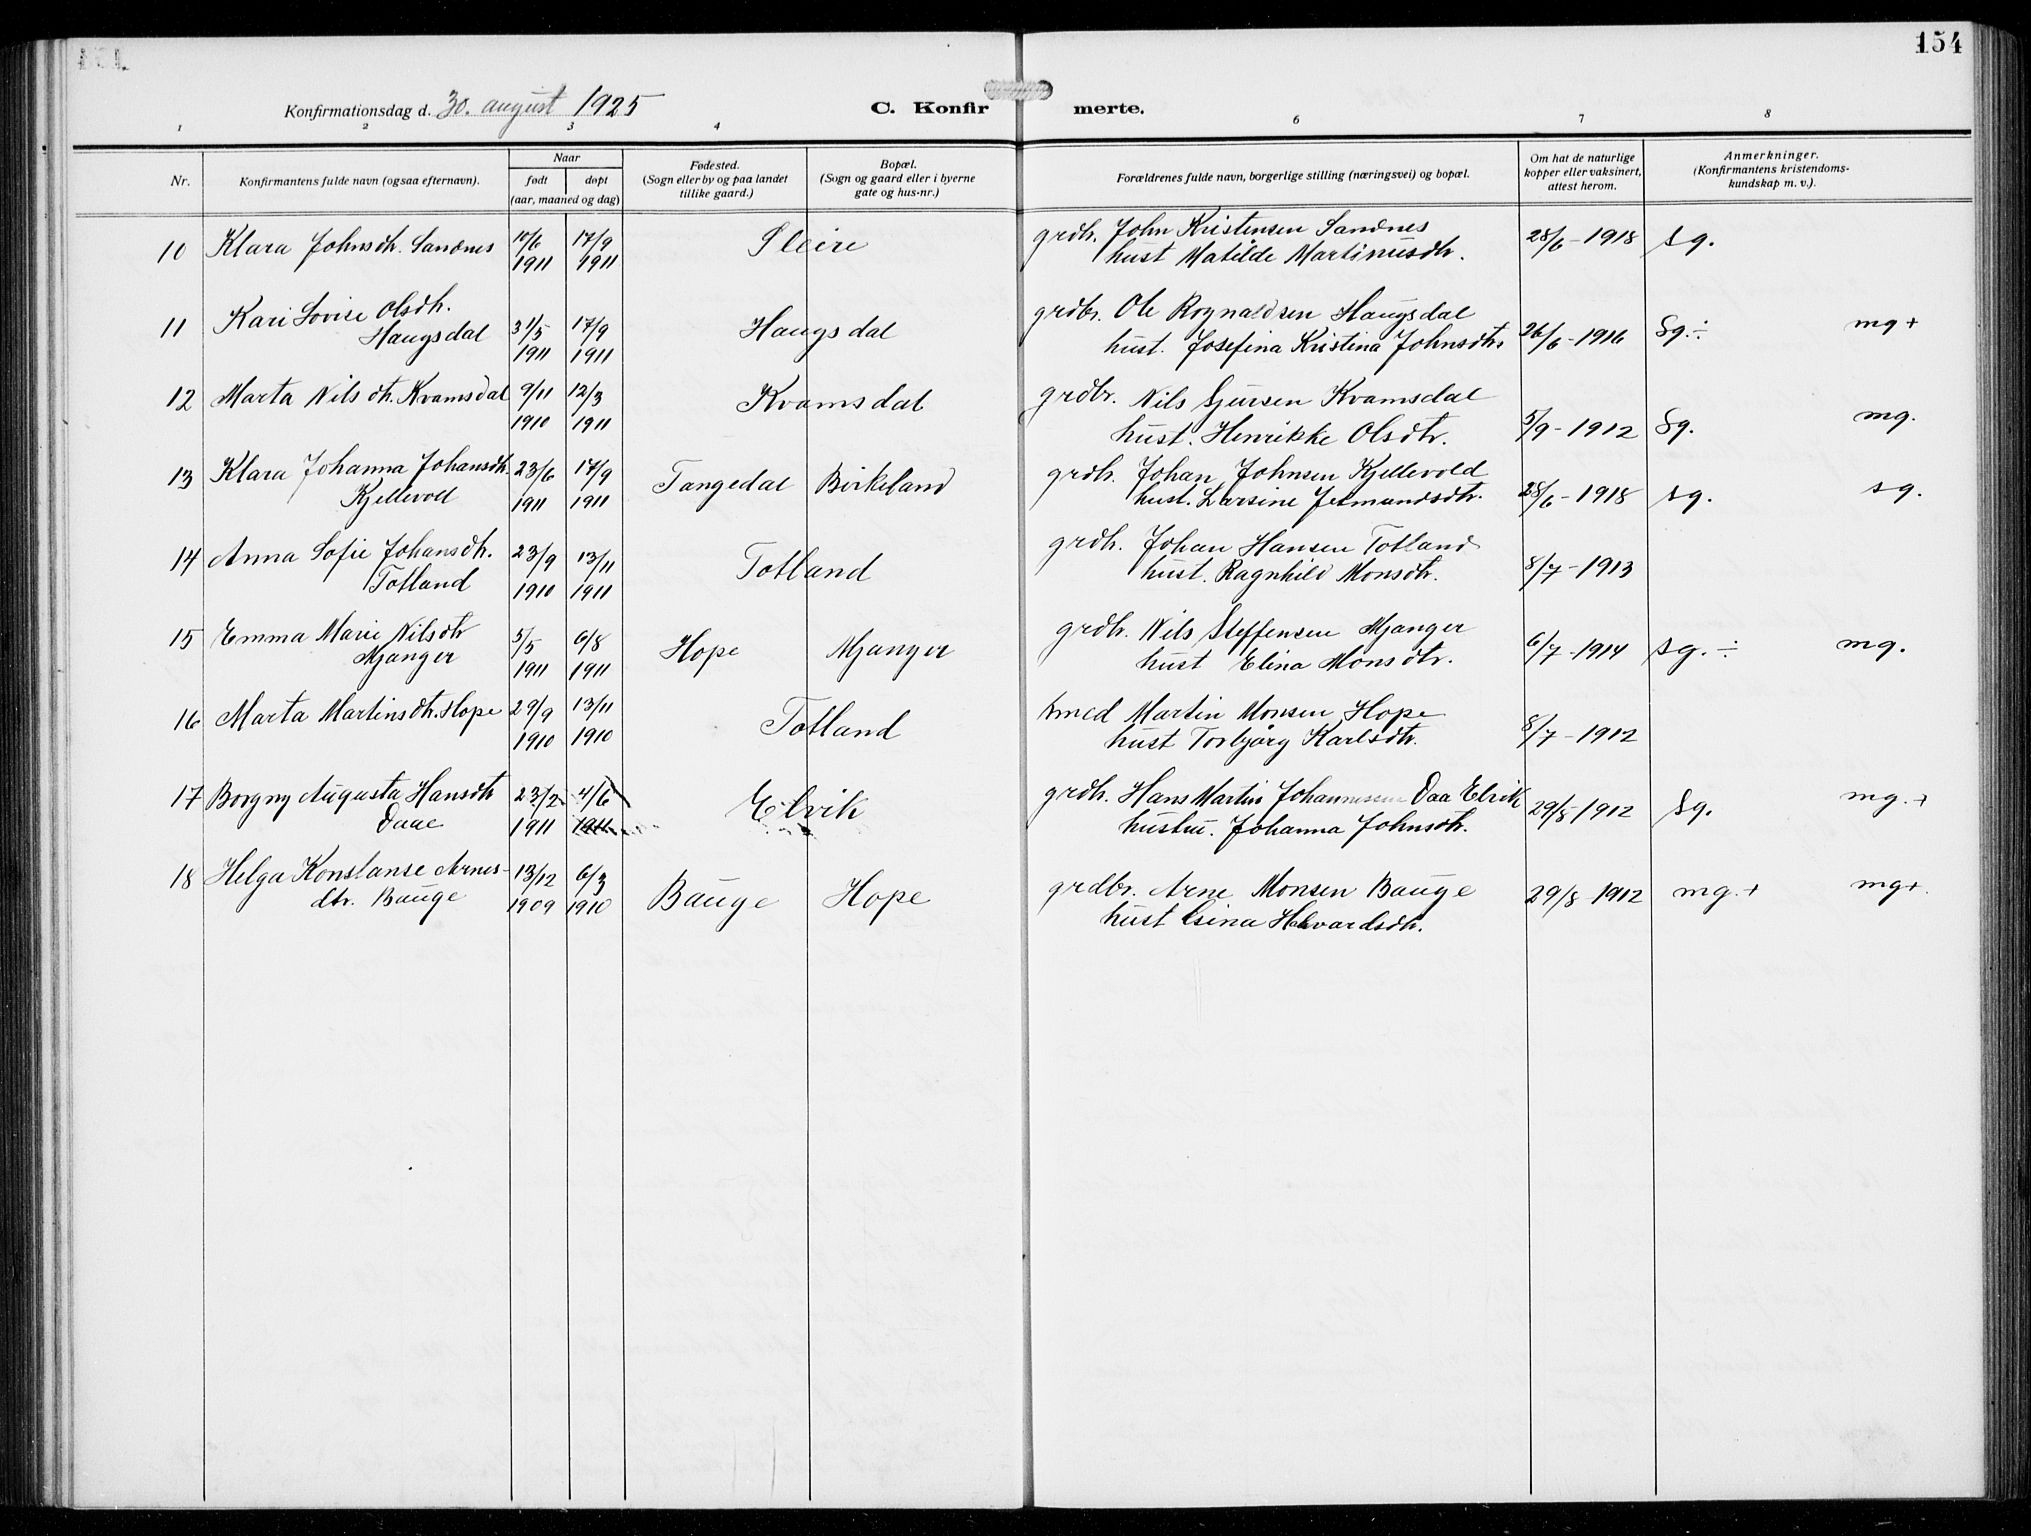 154
Konfirmationsdag d. 30. august 1925
C. Konfir merte.
1 2 3 4 6 7 8
Nr.
Konfirmantens fulde navn (ogsaa efternavn).
Naar
født døpt
(aar, maaned og dag)
Fødested.
(Sogn eller by og paa landet
tillike gaard.)
Bopæl.
(Sogn og gaard eller i byerne
gate og hus-nr.)
Forældrenes fulde navn, borgerlige stilling (næringsvei) og bopæl.
Om hat de naturlige
kopper eller vaksinert,
attest herom.
Anmerkninger.
(Konfirmantens kristendoms-
kundskap m. v.).
10 Klara Johnsdtr. Sandnes 10/6 17/9 Sleire grdbr. John Kristensen Sandnes 28/6-1918 sg.
1911 1911 hust Matilde Martinusdtr.
11 Kari Lovise Olsdtr. grdbr. Ole Rognaldsen Haugsdal
Haugsdal 31/5 17/9 Haugsdal hust. Josefina Kristina Johnsdtr. 26/6-1916 Sg.÷ mg+
1911 1911
12 Marta Nilsdtr. Kvamsdal 9/11 12/3 Kvamsdal grdbr. Nils Sjursen Kvamsdal
1910 1911 hust. Henrikke Olsdtr. 5/9-1912 Sg. mg.
13 Klara Johanna Johansdtr. 23/6 17/9 Tangedal Birkeland grdbr. Johan Johnsen Kjellevold
Kjellevold 1911 1911 hust. Larsine Jetmundsdtr. 28/6-1918 sg. sg.
14 Anna Sofie Johansdtr. 23/9 13/11 Totland grdbr. Johan Hansen Totland
Totland 1910 1911 hust. Ragnhild Monsdtr. 8/7-1913
15 Emma Marie Nilsdtr 5/5 6/8 Hope Mjanger grdbr. Nils Steffensen Mjanger 6/7-1914 sg.÷ mg.
Mjanger 1911 1911 hust Elina Monsdtr.
16 Marta Martinsdtr. Hope 29/9 13/11 Totland bmed Martin Monsen Hope
1910 1910 hust Torbjørg Karlsdtr. 8/7-1912
17 Borgny Augusta Hansdtr 23/2 4/6 Elvik grdbr. Hans Martin Johannessen Daa Elvik 29/8-1912 Sg. mg.+
Daae 1911 1911 hustru. Johanna Johnsdtr.
18 Helga Konstanse Arnes- 13/12 6/3 Bauge Hope grdbr. Arne Monsen Bauge 29/8-1912 mg.+ mg+.
dtr. Bauge 1909 1910 hust Esina Halvardsdtr.